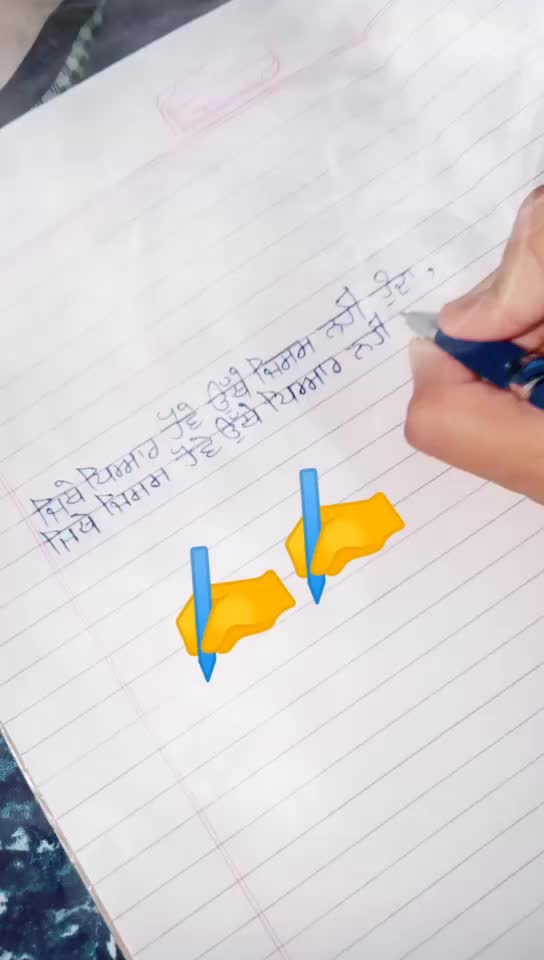 ਜਿਥੇ ਪਿਆਰ ਹੋਵੇ ਉੱਥੇ ਜਿਸਮ ਨਹੀਂ ਹੁੰਦਾ,
ਜਿਥੇ ਜਿਸਮ ਹੋਵੇ ਉੱਥੇ ਪਿਆਰ ਨਹੀਂ